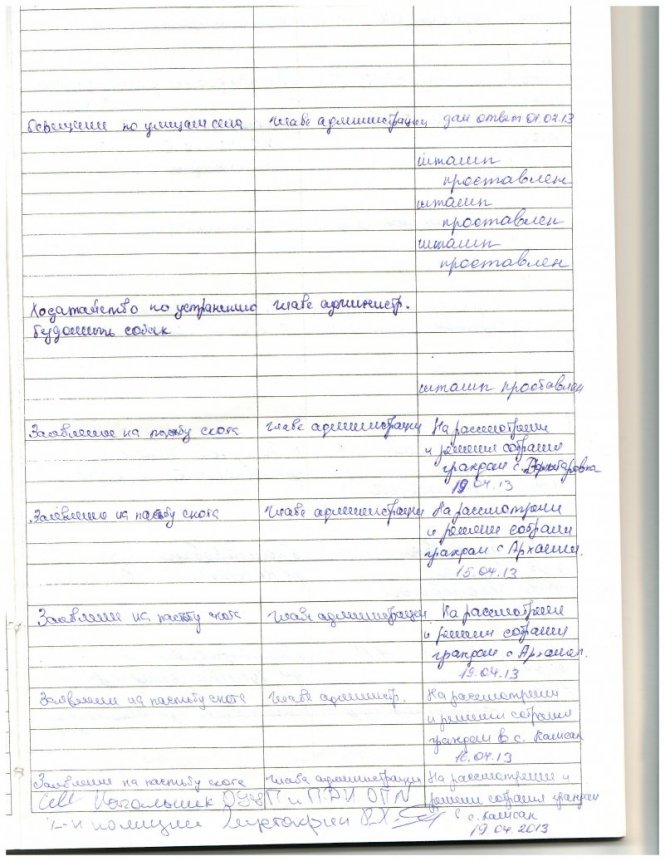 Освещение по улицам села главе администрации дан ответ 01.02.13
штамп
проставлен
штамп
проставлен
штамп
проставлен
Ходатайство по устранению главе администр.
бродячих собак
штамп проставлен
Заявление на пастьбу скота главе администрации На рассмотрении
и решении собрания
граждан с.
19.04.13
Заявление на пастьбу скота главе администрации На рассмотрении
и решении собрания
граждан с
15.04.13
Заявление на пастьбу скота главе администрации На рассмотрении
и решении собрания
граждан с
19.04.13
Заявление на пастьбу скота главе администр. На рассмотрении
и решении собрания
граждан в с. Камсак
16.04.13
Заявление на пастьбу скота главе администрации На рассмотрении и
Начальник ОУУП и ПДН ОП решении собрания граждан
полиции с. Камсак
19.04.2013